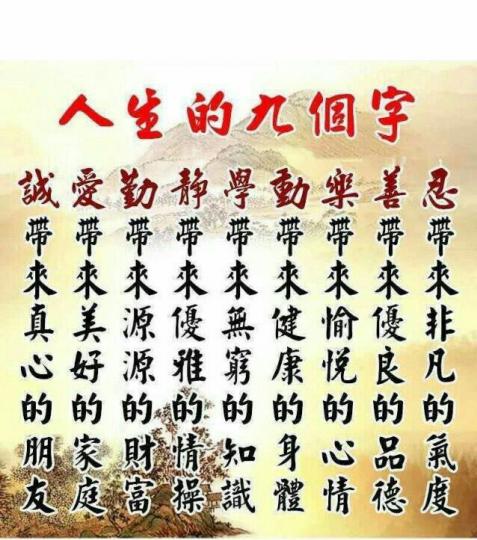 人生的九個字
忍帶來非凡的氣度
善帶來優良的品德
樂帶來愉悅的心情
動帶來健康的身體
學帶來無窮的知識
静帶來優雅的情操
勤帶來源源的財富
愛帶來美好的家庭
誠帶來真心的朋友